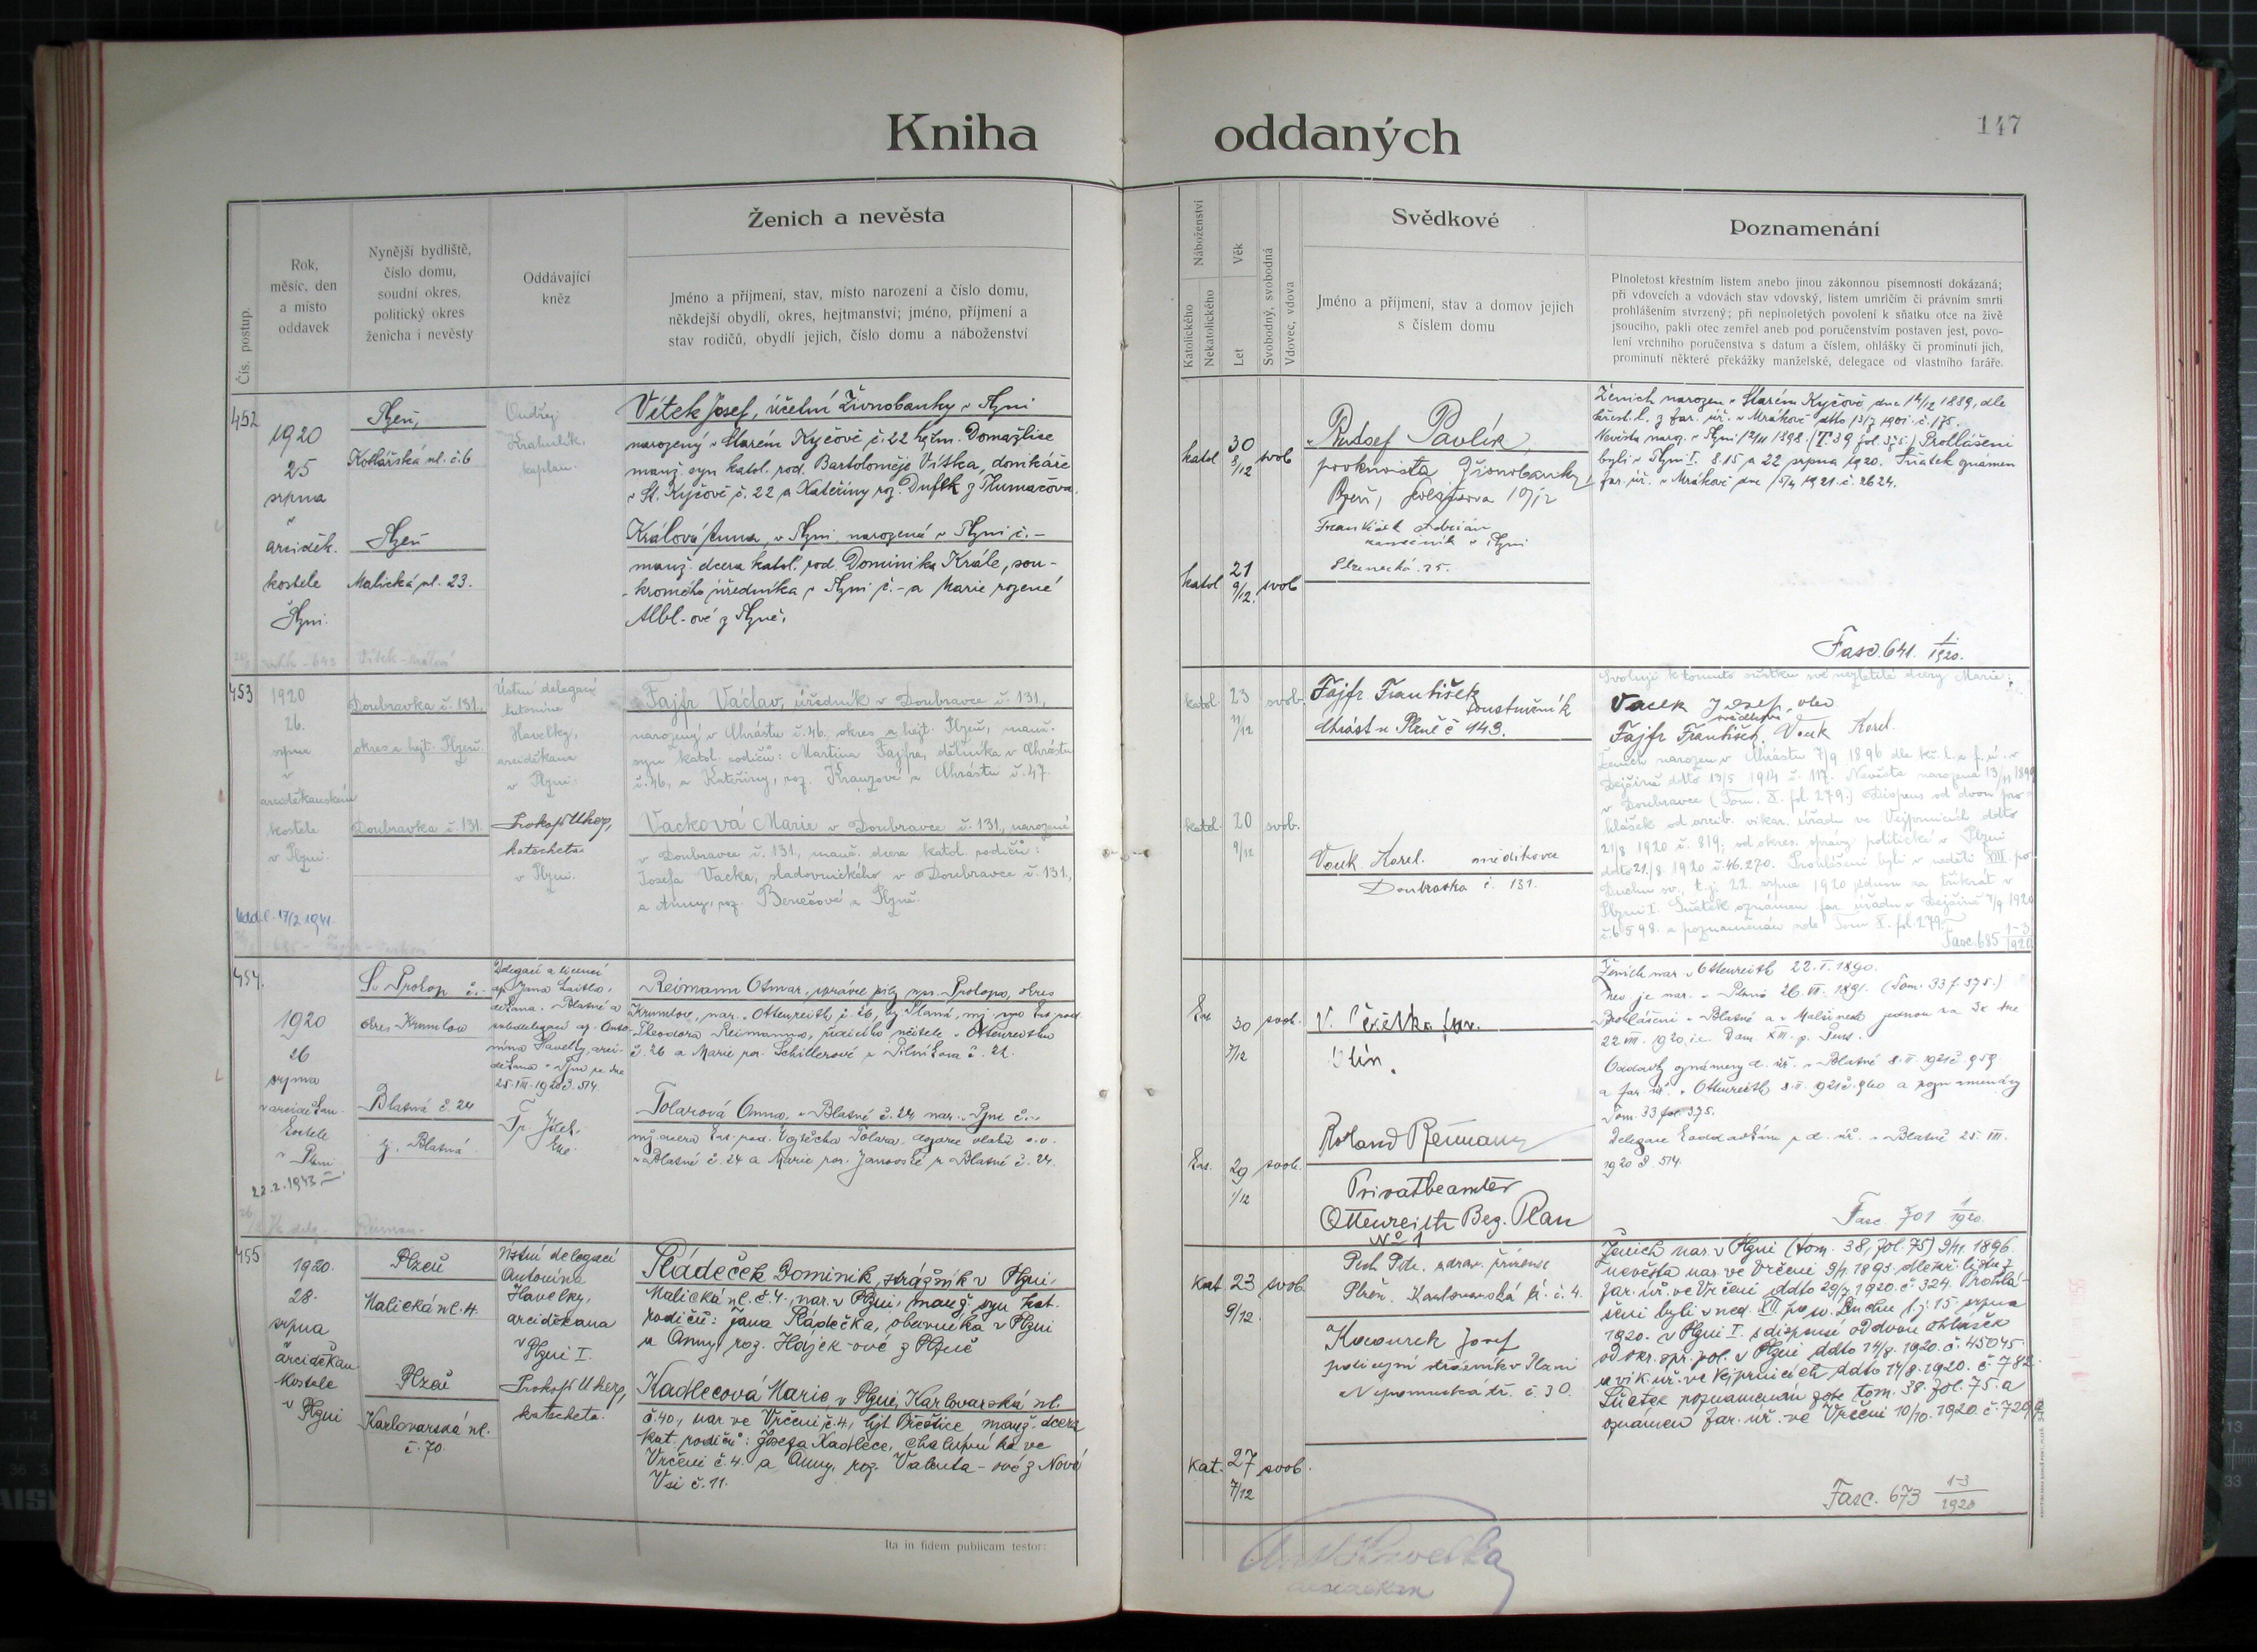 Kniha oddaných
147
Čís. postup.
Rok,
měsíc, den
a místo
oddavek
Nynější bydliště,
číslo domu,
soudní okres,
politický okres
ženicha i nevěsty
Oddávající
kněz
Ženich a nevěsta
Jméno a příjmení, stav, místo narození a číslo domu,
někdejší obydlí, okres, hejtmanství; jméno, příjmení a
stav rodičů, obydlí jejich, číslo domu a náboženství
Náboženství
Katolického
Nekatolického
Věk
Let
Svobodný, svobodná
Vdovec, vdova
Svědkové
Jméno a příjmení, stav a domov jejich
s číslem domu
Poznamenání
Plnoletost křestním listem anebo jinou zákonnou písemností dokázaná;
při vdovcích a vdovách stav vdovský, listem umrlčím či právním smrti
prohlášením stvrzený; při neplnoletých povolení k sňatku otce na živě
jsoucího, pakli otec zemřel aneb pod poručenstvím postaven jest, povo-
lení vrchního poručenstva s datum a číslem, ohlášky či prominutí jich,
prominutí některé překážky manželské, delegace od vlastního faráře.
452
1920
25
srpna
v
arciděk.
kostele
Plzni.
Plzeň,
Kollářská ul. č. 6
Plzeň
Malická ul. 23.
Ondřej
Krahulík,
kaplan.
Vítek Josef, účetní Živnobanky v Plzni
narozený v Starém Kyčově č. 22 hejtm. Domažlice
manž. syn katol. rod. Bartoloměje Vítka, domkáře
v St. Kyčově č. 22 a Kateřiny roz. Dufek z Tlumačova.
Králová Anna, v Plzni narozená v Plzni č. –
manž. dcera katol. rod. Dominika Krále, sou-
kromého úředníka v Plzni č. – a Marie rozené
Albl-ové z Plzně.
katol
30
8/12
svob
katol
21
9/12.
svob
Pavlík,
prokurista Živnobanky
František Adrián
v Plzni
Ženich narozen v Starém Kyčově dne 14/12 1889, dle
křest. l. z far. úř. v Mrákově
Nevěsta naroz. v Plzni 12/11 1898. (T. 39 fol. 375.) Prohlášeni
byli v Plzni I. 8. 15 a 22 srpna 1920. Sňatek oznámen
far. úř. v Mrákově dne 15/4 1921 č. 2624.
Fasc. 641. 1/1920.
453
1920
26.
srpna
v
arciděkanském
kostele
v Plzni.
Doubravka č. 131,
okres a hejt. Plzeň.
Doubravka č. 131.
Ústní delegací
Antonína
Havelky,
arciděkana
v Plzni.
Prokop Uher,
katecheta
v Plzni.
Fajfr Václav, úředník v Doubravce č. 131,
narozený v Chrástu č. 46, okres a hejt. Plzeň, manž.
syn katol. rodičů: Martina Fajfra, dělníka v Chrástu
č. 46, a Kateřiny, roz. Kranzové z Chrástu č. 47.
Vacková Marie v Doubravce č. 131, narozená
v Doubravce č. 131, manž. dcera katol. rodičů:
Josefa Vacka, sladovnického v Doubravce č. 131,
a Anny, roz. Benešové z Plzně.
17/2 1941.
katol.
23
11/12
svob.
katol.
20
9/12
svob.
Fajfr František
Chrást u Plzně č 143.
Vacek Karel.
Doubravka č. 131.
Svoluji k tomuto sňatku své nezletilé dcery Marie:
Vacek Josef, otec
svědkové
Fajfr František, Vacek Karel.
Ženich narozen v Chrástu 7/9 1896 dle kř. l. z f. ú. v
Dejšině ddto 13/5 1914 č. 117. Nevěsta narozená 13/11 1899
v Doubravce (Tom. X. fol. 279.) Dispens od dvou pro-
hlášek od arcib. vikar. úřadu ve Vejprnicích ddto
21/8 1920 č. 819; od okres. správy politické v Plzni
ddto 21/8. 1920 č. 46.270. Prohlášeni byli v neděli XIII. po
Duchu sv., t. j. 22. srpna 1920 jednou za třikrát v
Plzni I. Sňatek oznámen far. úřadu v Dejšině 7/9 1920
č. 6598. a poznamenán zde Tom X. fol. 279.
Fasc. 685 1-3/1920
454.
1920
26
srpna
v arciděkan.
kostele
v Plzni
22. 2. 1943
Sv. Prokop č. –
okres Krumlov
Blatná č. 24
z. Blatná
Delegací a licencí
děkana v Blatné a
subdelegací
Havelky, arci-
děkana v Plzni ze dne
25. VIII. 1920 č. 514.
Reimann Otmar, správce pily
Krumlov, nar. v Ottenreith č. 26,
Theodora Reimanna, řídícího učitele v Ottenreithu
č. 26 a Marie roz. Schillerové
Tolarová Anna, v Blatné č. 24 nar. v Plzni č. –
v Blatné č. 24 a Marie roz. Janovské z Blatné č. 24.
30
7/12
svob.
29
1/12
svob.
Roland Reimann
Privatbeamter
Ottenreith Bez. Plan
No 1
Ženich nar. v Ottenreith 22. I. 1890.
nev je nar. v Plzni 26. VII. 1891. (Tom. 33 f. 375.)
Prohlášeni v Blatné a v Malšinech jednou za 3x dne
22 VIII. 1920, i.e. Dom. XIII. p. Pent.
Oddavky oznámeny d. úř. v Blatné 8. II. 1921 č. 959
a far. úř. v Ottenreith 8. II. 1921 č. 960 a poznamenány
Tom. 33 fol. 375.
Delegace k oddavkám z d. úř. v Blatné 25. VIII.
1920 č. 514.
Fasc. 701 1/1920.
455
1920.
28.
srpna
v
arciděkan
kostele
v Plzni
Plzeň
Malická ul. 4.
Plzeň
Karlovarská ul.
č. 70.
Ústní delegací
Antonína
Havelky,
arciděkana
v Plzni I.
Prokop Uher,
katecheta.
Sládeček Dominik, strážník v Plzni,
Malická ul. č. 4., nar. v Plzni, manž. syn kat.
rodičů: Jana Sládečka, obuvníka v Plzni
a Anny, roz. Hájek-ové z Plzně
Kadlecová Marie, v Plzni, Karlovarská ul.
č. 40, nar. ve Vrčeni č. 4, hejt. Přeštice manž. dcera
kat. rodičů: Josefa Kadlece, chalupníka ve
Vrčeni č. 4. a Anny, roz. Valenta-ové z Nové
Vsi č. 11.
Ita in fidem publicam testor:
kat.
23
9/12.
svob.
kat.
27
7/12
svob.
Plzeň. Karlovarská tř. č. 4.
Kocourek Josef
policejní strážník v Plzni
Nepomucká tř. č. 30.
Ženich nar. v Plzni (tom. 38, fol. 75) 9/11. 1896.
nevěsta nar. ve Vrčeni 9/1. 1893. dle kř. listu z
far. úř. ve Vrčeni ddto 29/7 1920. č. 324. Prohlá-
šeni byli v ned. XII. po sv. Duchu t. j. 15 srpna
1920. v Plzni I. s dispensí od dvou ohlášek
od okr. spr. pol. v Plzni ddto 14/8. 1920. č. 45045.
a vik. úř. ve Vejprnicích ddto 14/8. 1920. č. 782.
Sňatek poznamenán zde tom. 38. fol. 75. a
oznámen far. úř. ve Vrčeni 10/10. 1920.
Fasc. 673 1-3/1920
Ant. Havelka
arciděkan